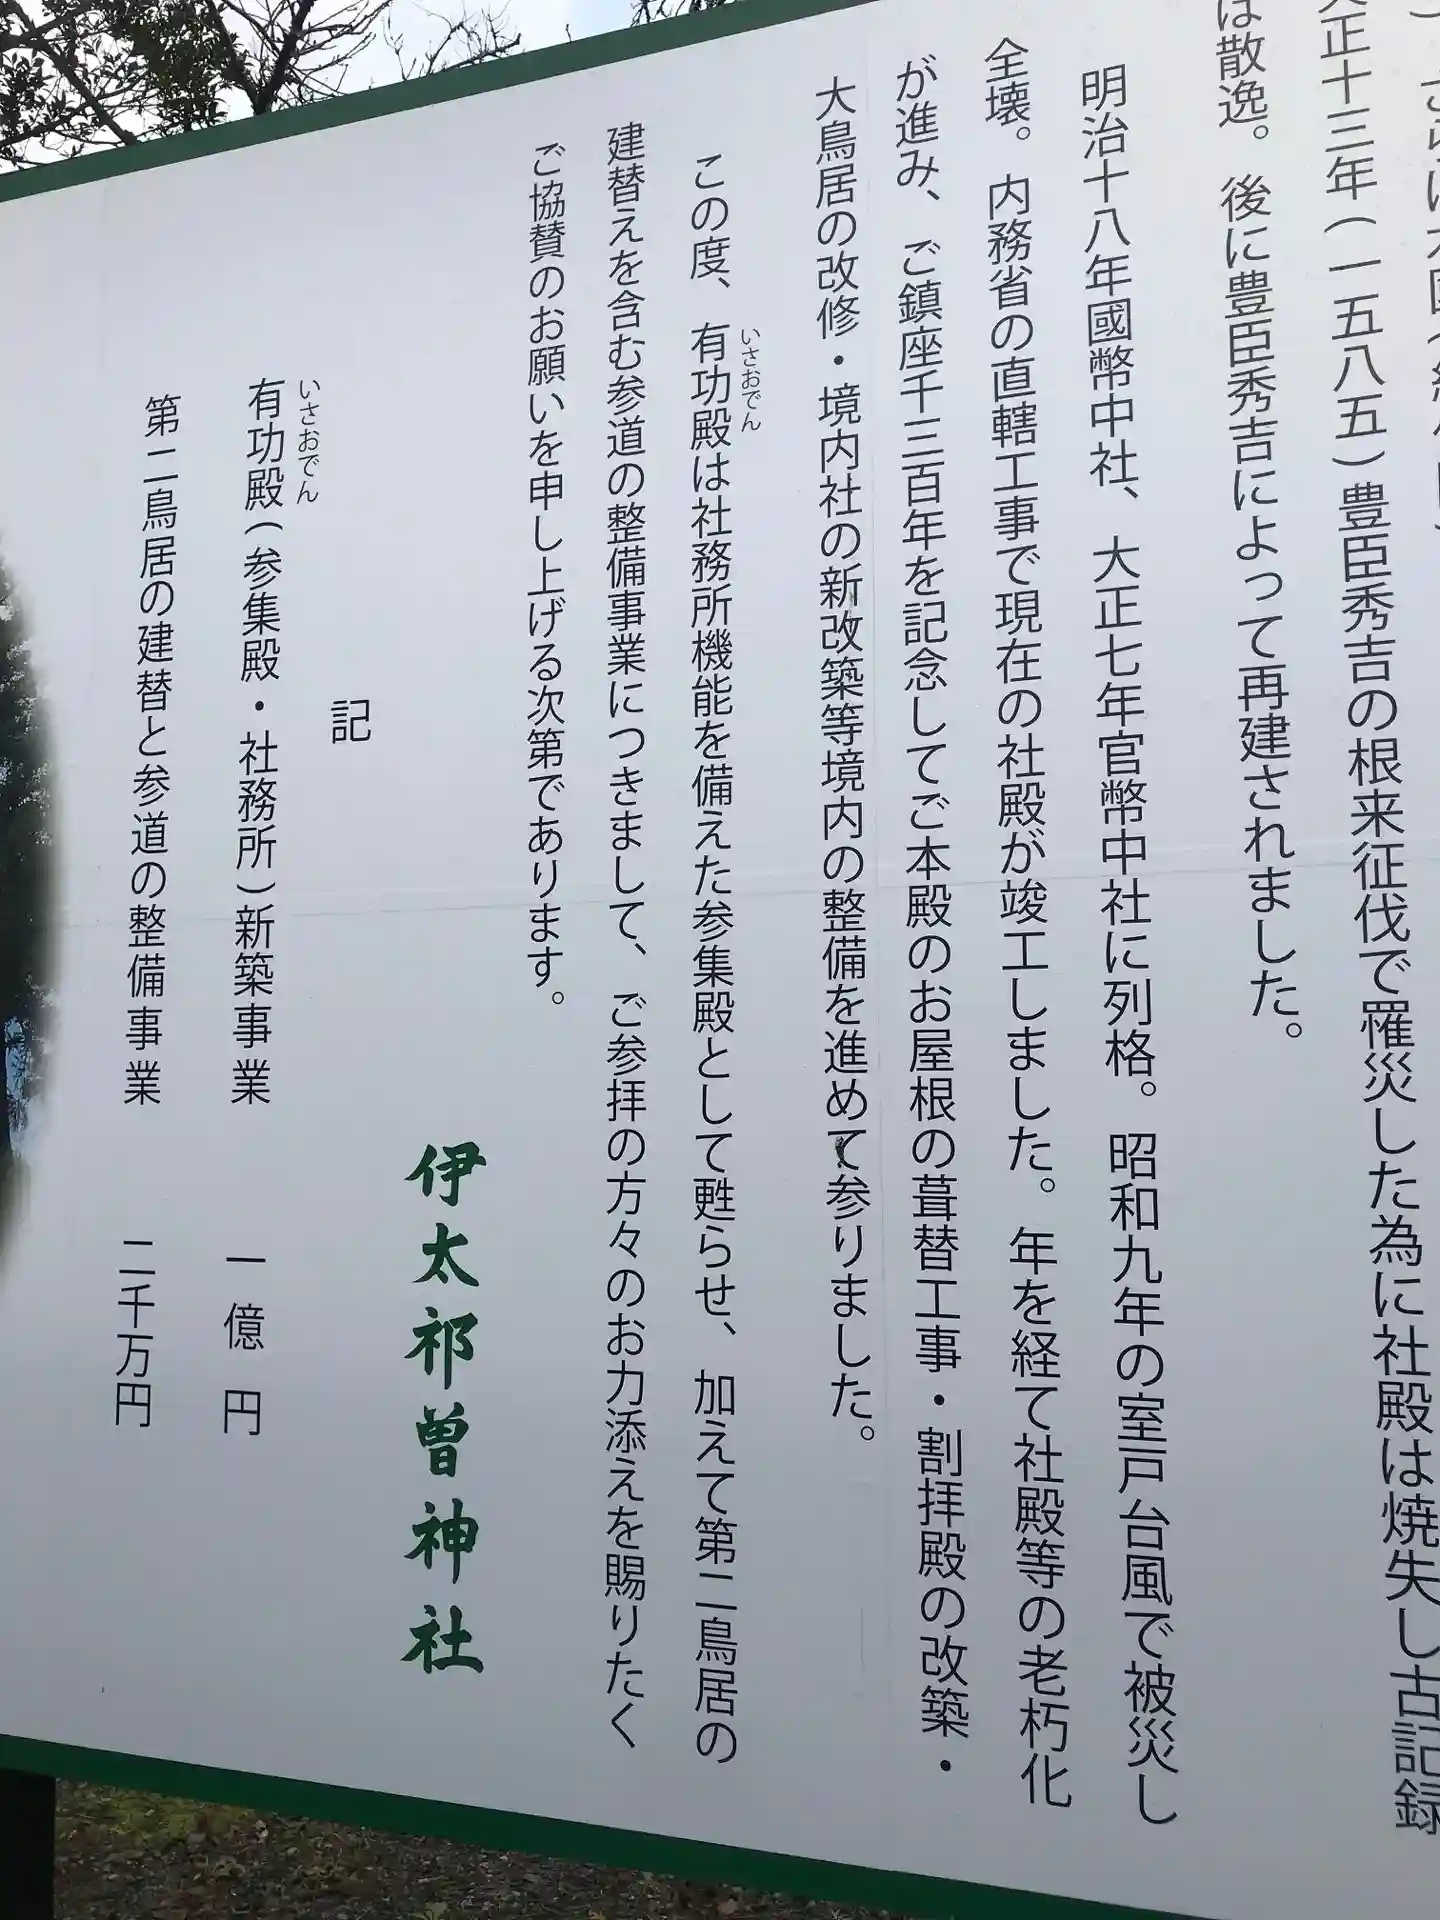 大正十三年(一五八五)豊臣秀吉の根来征伐で罹災した為に社殿は焼失し古記録
は散逸。後に豊臣秀吉によって再建されました。
明治十八年國幣中社、大正七年官幣中社に列格。昭和九年の室戸台風で被災し
全壊。内務省の直轄工事で現在の社殿が竣工しました。年を経て社殿等の老朽化
が進み、ご鎮座千三百年を記念してご本殿のお屋根の葺替工事・割拝殿の改築・
大鳥居の改修・境内社の新改築等境内の整備を進めて参りました。
この度、有功殿は社務所機能を備えた参集殿として甦らせ、加えて第二鳥居の
いさおでん
建替えを含む参道の整備事業につきまして、ご参拝の方々のお力添えを賜りたく
ご協賛のお願いを申し上げる次第であります。
伊太祁曽神社
記
有功殿(参集殿・社務所)新築事業 一億円
いさおでん
第二鳥居の建替と参道の整備事業 二千万円